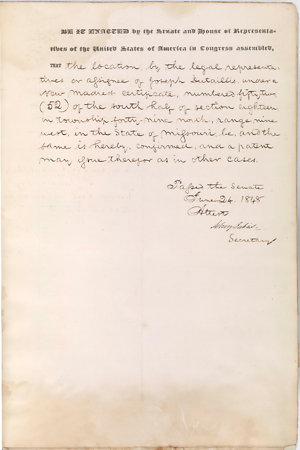 BE IT ENACTED by the Senate and House of Representa-
tives of the United States of America in Congress assembled,
THAT the location by the legal representa-
tives or assignee of Joseph under a
New Madrid certificate, numbered fifty two
(52) of the south half of section eighteen
in township forty-nine north, range nine
west, in the State of Missouri, be, and the
same is hereby, confirmed, and a patent
may issue therefor as in other cases.
Passed the Senate
June 24, 1848
Attest
Secretary